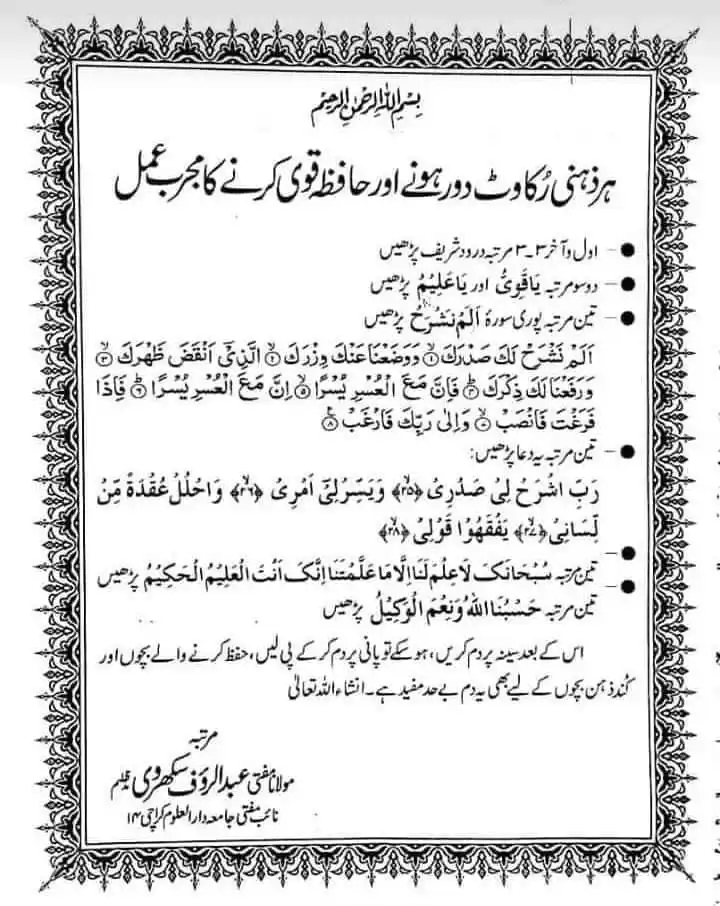 بِسْمِ اللہِ الرَّحْمٰنِ الرَّحِیْمِ
ہر ذہنی رُکاوٹ دور ہونے اور حافظہ قوی کرنے کا مجرب عمل
● – اول و آخر ۳-۳ مرتبہ درود شریف پڑھیں
● – دو سو مرتبہ یَا قَوِیُّ اور یَا عَلِیْمُ پڑھیں
● – تین مرتبہ پوری سورۂ اَلَمْ نَشْرَحْ پڑھیں
اَلَمْ نَشْرَحْ لَكَ صَدْرَكَ ۙ﴿۱﴾ وَوَضَعْنَا عَنْكَ وِزْرَكَ ۙ﴿۲﴾ الَّذِیْۤ اَنْقَضَ ظَهْرَكَ ۙ﴿۳﴾
وَرَفَعْنَا لَكَ ذِكْرَكَ ؕ﴿۴﴾ فَاِنَّ مَعَ الْعُسْرِ یُسْرًا ۙ﴿۵﴾ اِنَّ مَعَ الْعُسْرِ یُسْرًا ؕ﴿۶﴾ فَاِذَا
فَرَغْتَ فَانْصَبْ ۙ﴿۷﴾ وَاِلٰى رَبِّكَ فَارْغَبْ ﴿۸﴾
● – تین مرتبہ یہ دعا پڑھیں:
رَبِّ اشْرَحْ لِیْ صَدْرِیْ ﴿ۙ۲۵﴾ وَیَسِّرْ لِیْۤ اَمْرِیْ ﴿ۙ۲۶﴾ وَاحْلُلْ عُقْدَةً مِّنْ
لِّسَانِیْ ﴿ۙ۲۷﴾ یَفْقَهُوْا قَوْلِیْ ﴿۲۸﴾
● – تین مرتبہ سُبْحَانَکَ لَا عِلْمَ لَنَا اِلَّا مَا عَلَّمْتَنَا اِنَّکَ اَنْتَ الْعَلِیْمُ الْحَکِیْمُ پڑھیں
● – تین مرتبہ حَسْبُنَا اللہُ وَنِعْمَ الْوَکِیْلُ پڑھیں
اس کے بعد سینہ پر دم کریں، ہو سکے تو پانی پر دم کر کے پی لیں، حفظ کرنے والے بچوں اور
کُند ذہن بچوں کے لیے بھی یہ دم بے حد مفید ہے۔ انشاء اللہ تعالیٰ
مرتبہ
مولانا مفتی عبدالرؤف سکھروی مدظلہم
نائب مفتی جامعہ دارالعلوم کراچی ۱۴